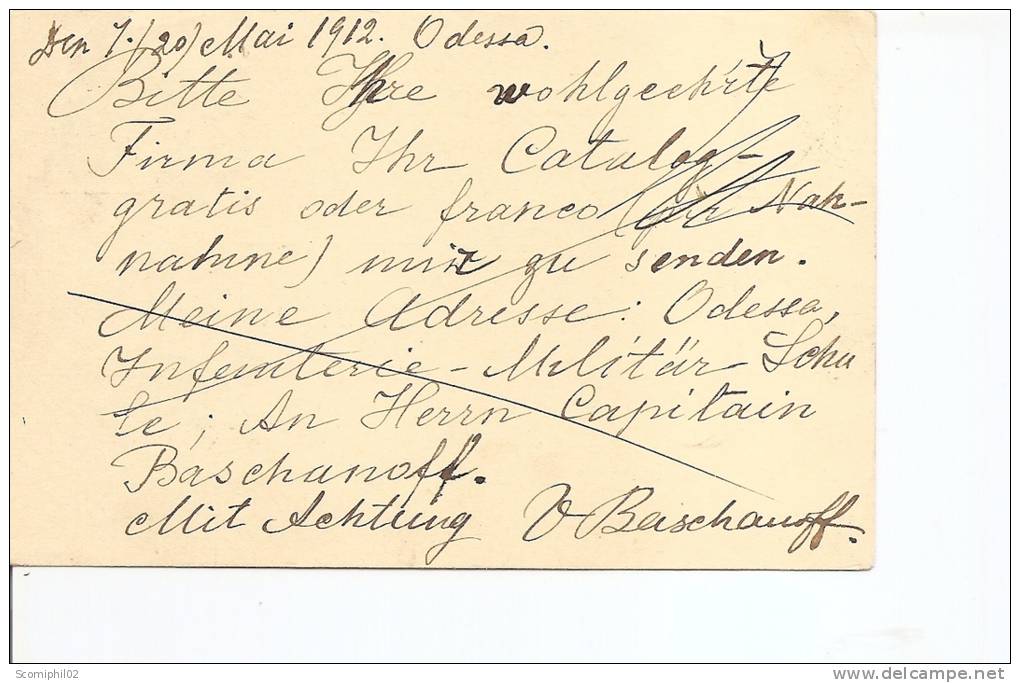 Den 7./20/ Mai 1912. Odessa.
Bitte Ihre wohlgeehrte
Firma Ihr Catalog-
gratis oder franco (per Nah-
nahme) mir zu senden.
Meine Adresse: Odessa,
Infenterie-Militär Schu
le; An Herrn Capitain
Baschanoff.
Mit Achtung V Baschanoff.
Scomiphil02
delcampe.net